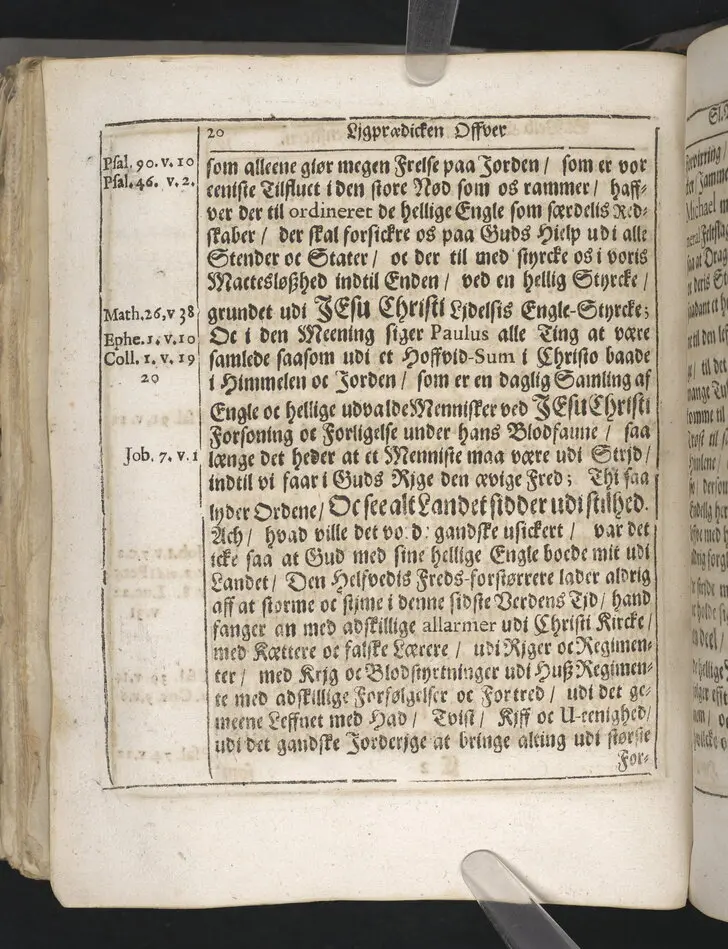 20 Ljgprædicken Offver
Psal. 90. v. 10
Psal. 46. v. 2.
Math. 26, v 38
Ephe. 1. v. 10
Coll. 1. v. 19
20
Job. 7. v. 1
som alleene giør megen Frelse paa Jorden / som er vor
eeniste Tilfluct i den store Nød som os rammer / haff-
ver der til ordineret de hellige Engle som særdelis Red-
skaber / der skal forsickre os paa Guds Hielp udi alle
Stender oc Stater / oc der til med styrcke os i voris
Mactesløßhed indtil Enden / ved en hellig Styrcke /
grundet udi JEsu Christi Ljdelsis Engle-Styrcke;
Oc i den Meening siger Paulus alle Ting at være
samlede saasom udi et Hoffvid-Sum i Christo baade
i Himmelen oc Jorden / som er en daglig Samling af
Engle oc hellige udvalde Mennisker ved JEsu Christi
Forsoning oc Forligelse under hans Blodfaune / saa
længe det heder at et Menniske maa være udi Strjd /
indtil vi faar i Guds Rjge den ævige Fred; Thi saa
lyder Ordene / Oc see alt Landet sidder udi stilhed.
Ach / hvad ville det vo: d: gandske usickert / var det
icke saa at Gud med sine hellige Engle boede mit udi
Landet / Den Helfvedis Freds-forstørrere lader aldrig
aff at storme oc stjme i denne sidste Verdens Tjd / hand
fanger an med adskillige allarmer udi Christi Kircke /
med Kættere oc falske Lærere / udi Rjger oc Regimen-
ter / med Krjg oc Blodstyrtninger udi Huß Regimen-
te med adskillige Forfølgelser oc Fortred / udi det ge-
meene Leffnet med Had / Tvist / Kjff oc U-eenighed /
udi det gandske Jorderjge at bringe alting udi største
For-